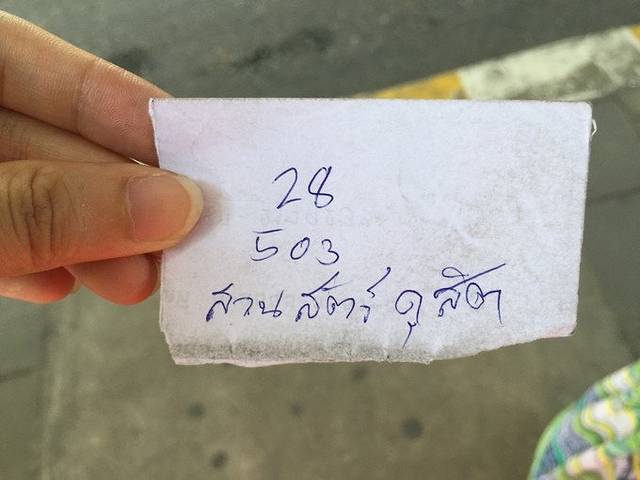 28
503
สวน สัตว์ ดุสิต